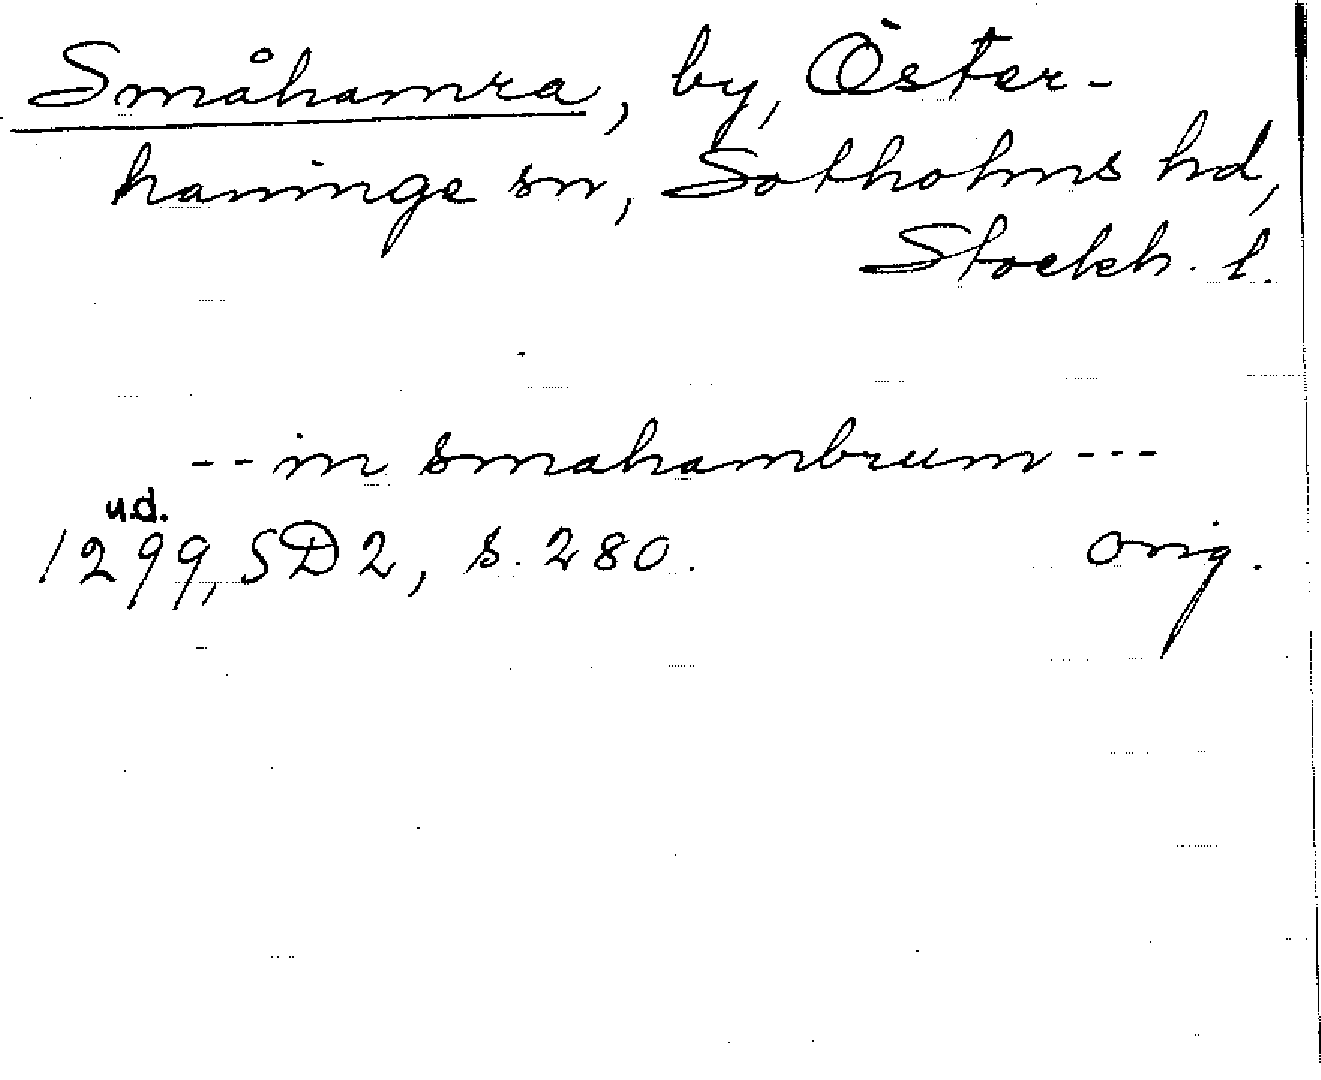 Småhamra, by, Öster-
haninge sn, Sotholms hd,
Stockh. l.
-- in smahambrum ---
u.d.
1299, SD 2, s. 280. orig.